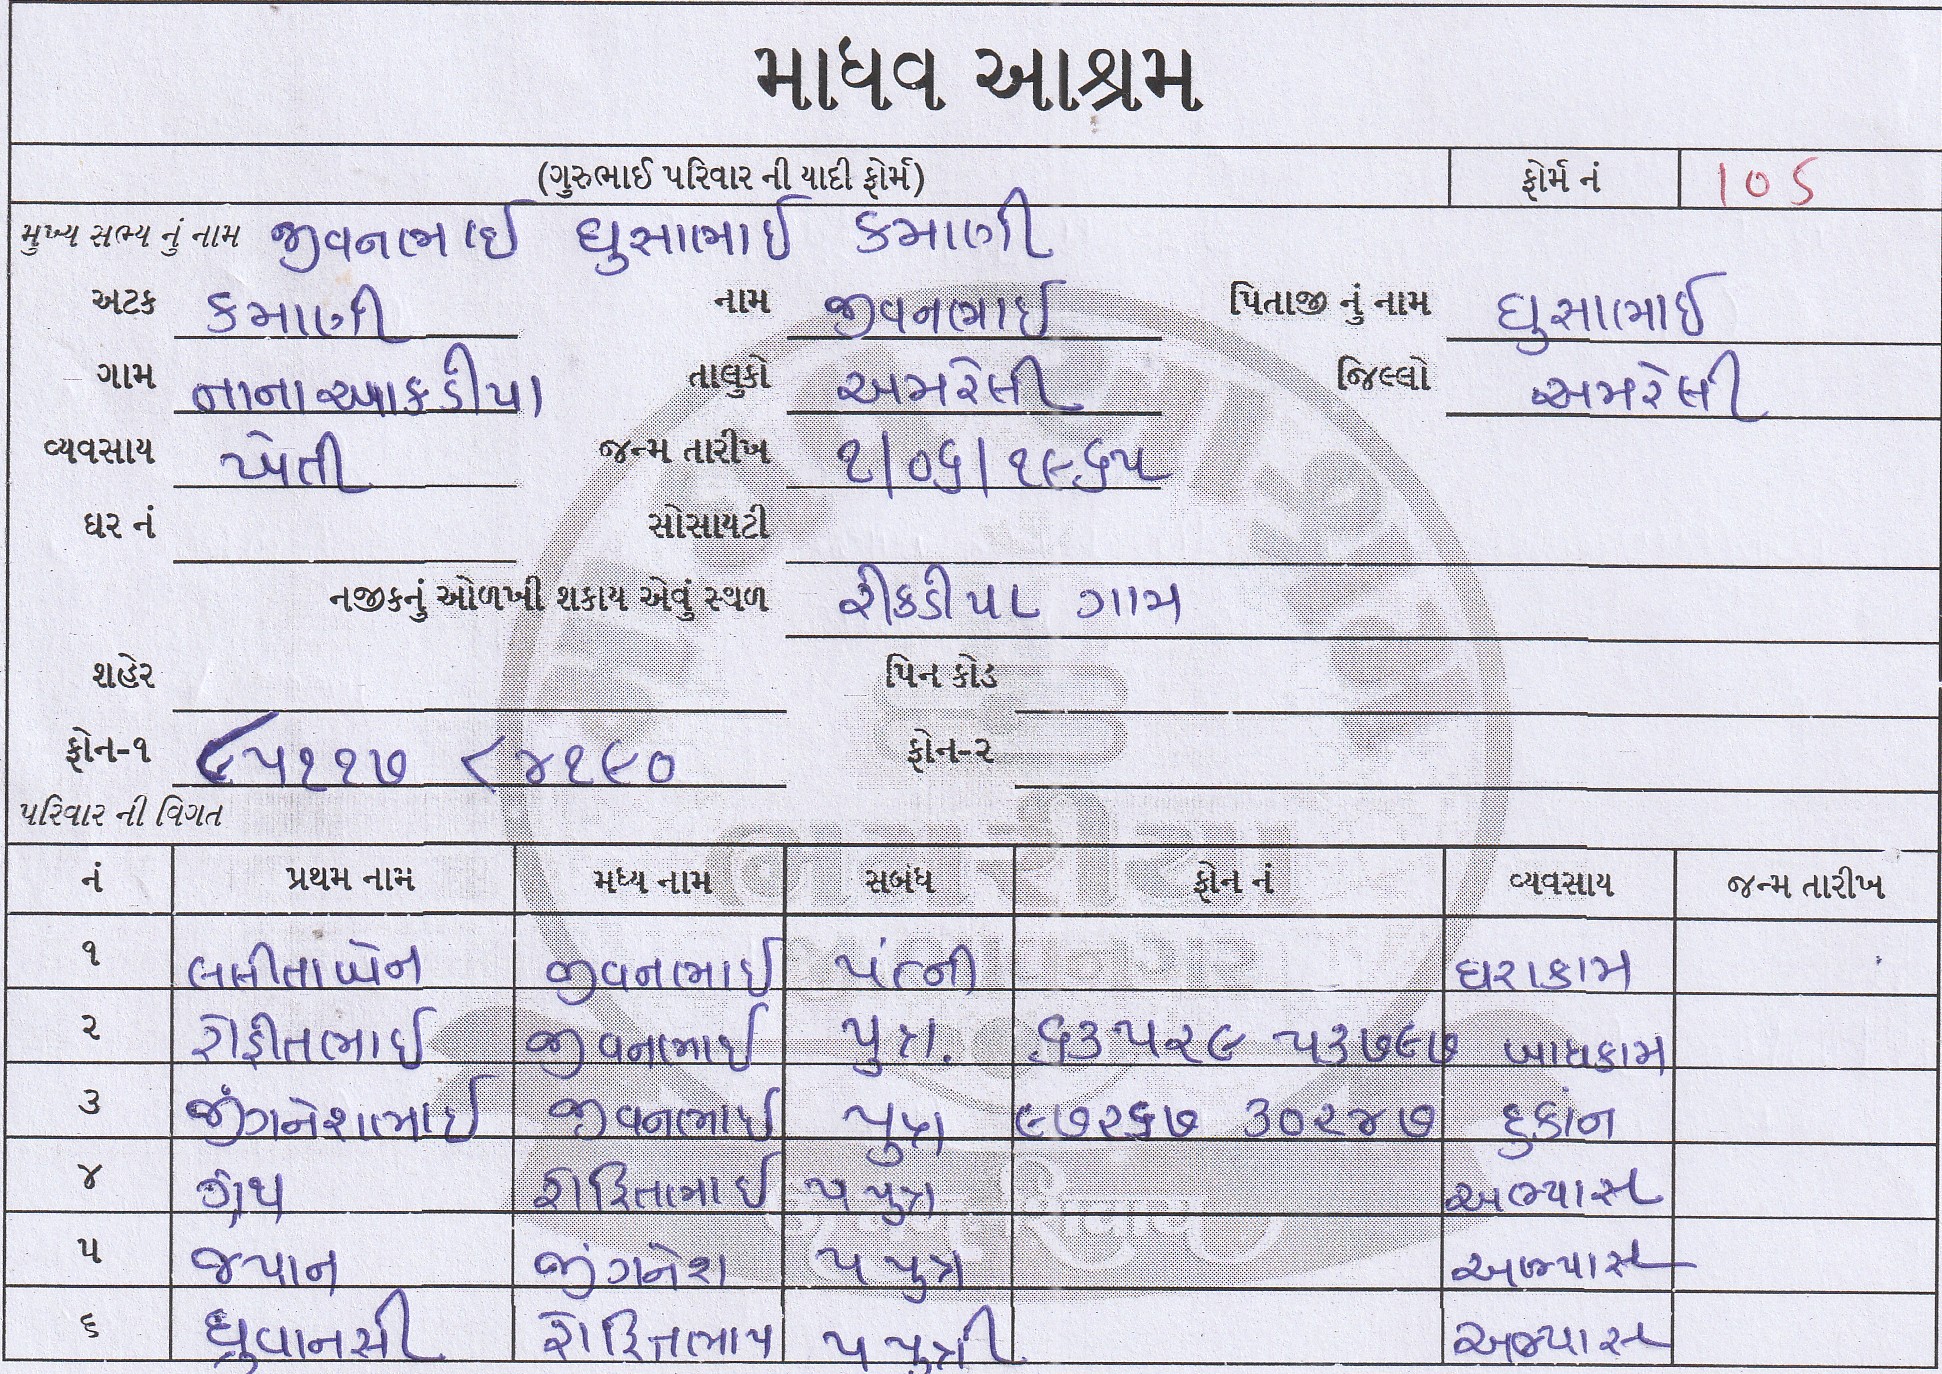 માધવ આશ્રમ
(ગુરુભાઈ પરિવાર ની યાદી ફોર્મ) ફોર્મ નં 10૬
મુખ્ય સભ્ય નું નામ જીવનભાઈ ઘુસાભાઈ કમાણી
અટક કમાણી નામ જીવનભાઈ પિતાજી નું નામ ઘુસાભાઈ
ગામ નાના આકડીયા તાલુકો અમરેલી જિલ્લો અમરેલી
વ્યવસાય ખેતી જન્મ તારીખ ૧/૦૬/૧૯૬૫
ઘર નં સોસાયટી
નજીકનું ઓળખી શકાય એવું સ્થળ ગામ
શહેર પિન કોડ
ફોન-૧ ૯૫૧૧૭ ૮૪૧૯૦ ફોન-૨
પરિવાર ની વિગત
નં પ્રથમ નામ મધ્ય નામ સબંધ ફોન નં વ્યવસાય જન્મ તારીખ
૧ લલીતાબેન જીવનભાઈ પત્ની ઘરકામ
૨ રોહીતભાઈ જીવનભાઈ પુત્ર. ૬૩૫૨૯ ૫૩૭૯૭ બાધકામ
૩ જીગનેશભાઈ જીવનભાઈ પુત્ર ૯૭૨૬૭ ૩૦૨૪૭ દુકાન
૪ રોહિતભાઈ પ પુત્ર અભ્યાસ
૫ જીગનેશ પ પુત્ર અભ્યાસ
૬ ધ્રુવાનસી રોહિતભાઈ પ પુત્રી અભ્યાસ